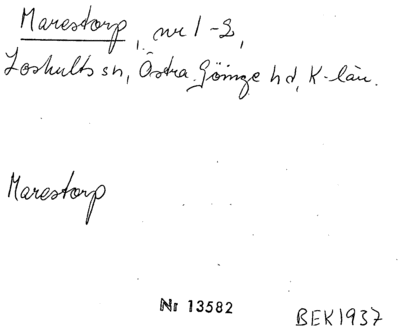 Marestorp, nr 1-2,
Loshults sn, Östra Göinge hd, K-län.
Marestorp
Nr 13582
BEK1937